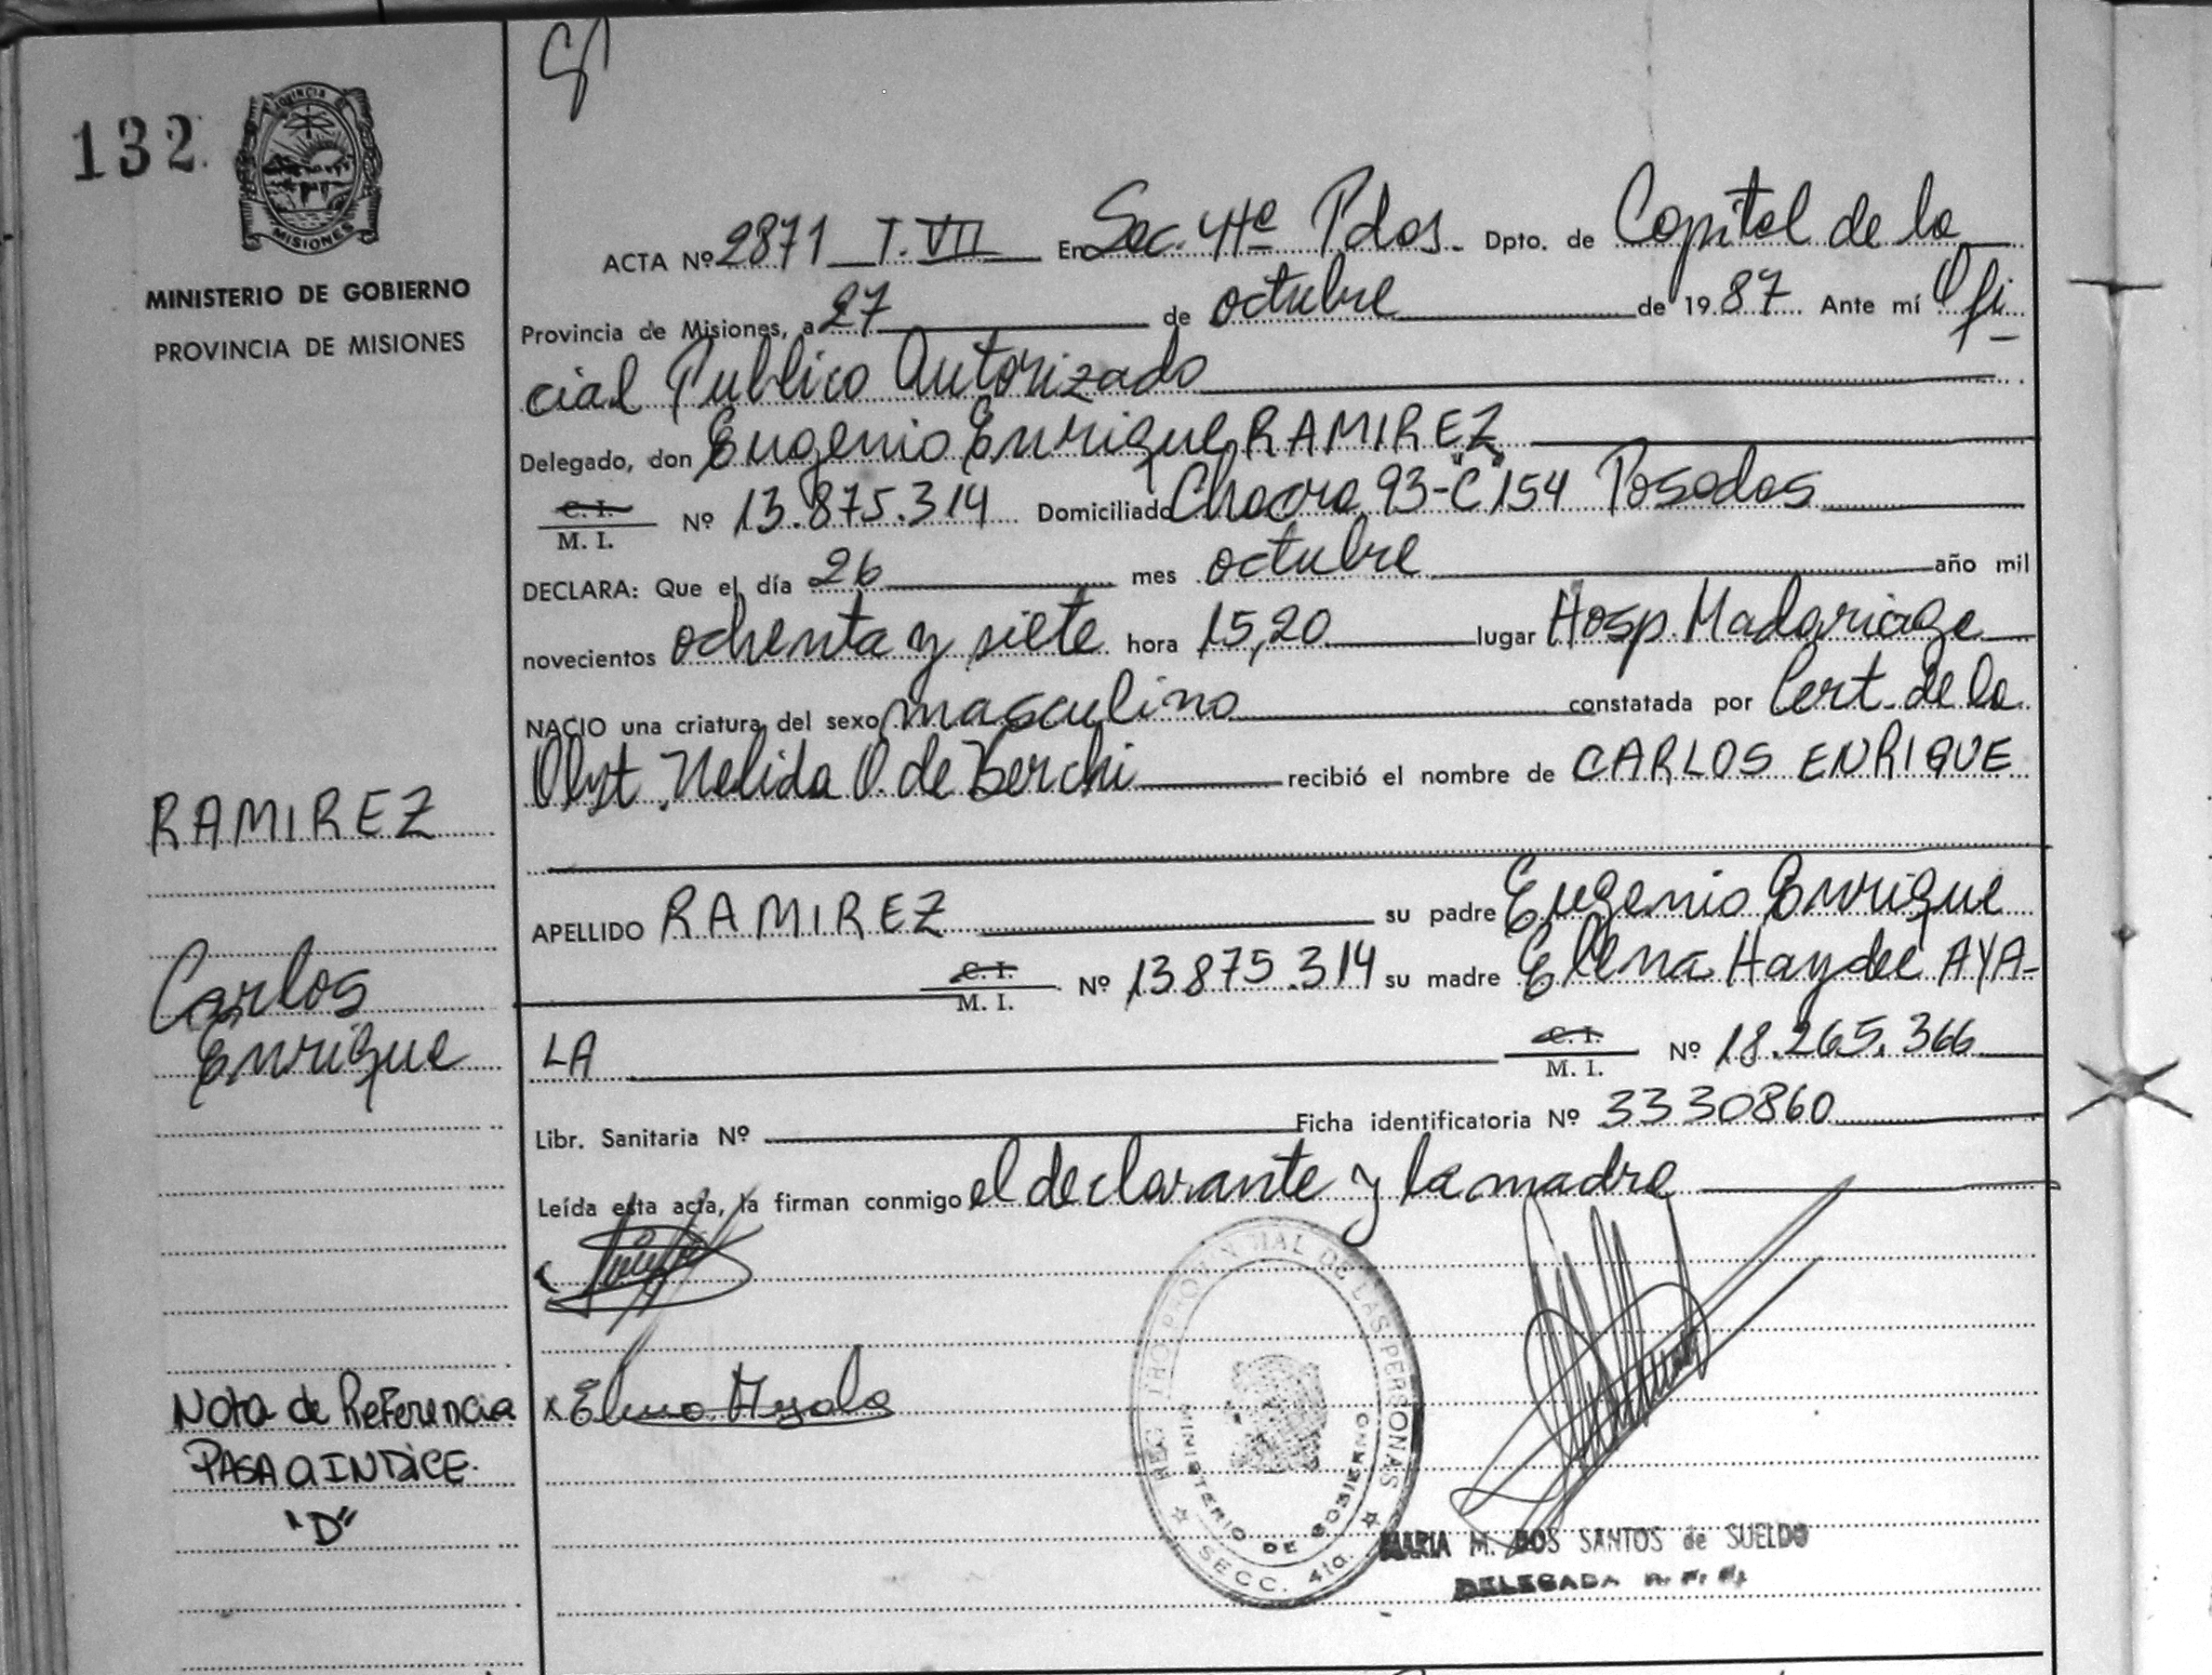 132
PROVINCIA
MISIONES
MINISTERIO DE GOBIERNO
PROVINCIA DE MISIONES
RAMIREZ
Carlos
Enrique
Nota de Referencia
PASA a INDICE
"D"
ACTA Nº 2871 T. VII En Sec. 4ta Pdas. Dpto. de Capital de la
Provincia de Misiones, a 27 de octubre de 1987. Ante mí Ofi
cial Publico Autorizado
Delegado, don Eugenio Enrique RAMIREZ
C. I.
M. I. Nº 13.875.314 Domiciliado Chacra 93-"C" 154 Posadas
DECLARA: Que el día 26 mes octubre año mil
novecientos ochenta y siete hora 15,20 lugar Hosp. Madariaga
NACIO una criatura del sexo masculino constatada por Cert. de la
Obst. Nelida O. de Berchi recibió el nombre de CARLOS ENRIQUE
APELLIDO RAMIREZ su padre Eugenio Enrique
C. I.
M. I. Nº 13875.314 su madre Elena Haydee AYA-
LA C. I.
M. I. Nº 18.265.366
Libr. Sanitaria Nº Ficha identificatoria Nº 3330860
Leída esta acta, la firman conmigo el declarante y la madre
x Elena Ayala
REG. PROVINCIAL DE LAS PERSONAS
MINISTERIO DE GOBIERNO
SECC. 4ta.
MARIA M. DOS SANTOS de SUELDO
DELEGADA